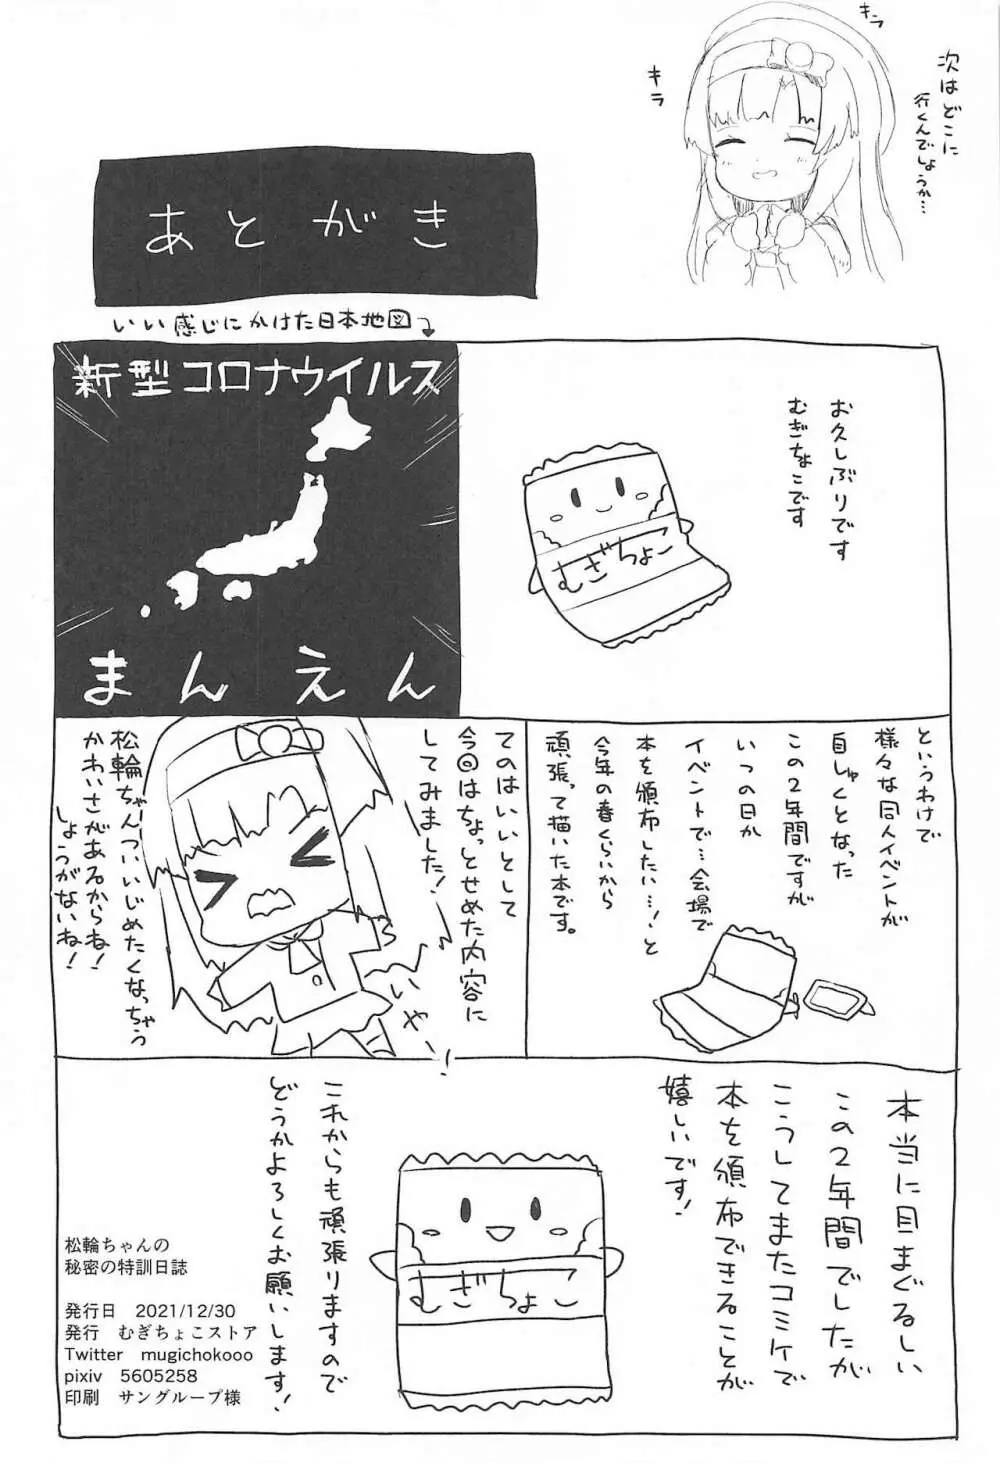 次はどこに
行くんでしょうか…
キラ
キラ
あとがき
いい感じにかけた日本地図
お久しぶりです
むぎちょこです
むぎちょこ
新型コロナウイルス
まんえん
というわけで
様々な同人イベントが
自しゅくとなった
この2年間ですが
いつの日か
イベントで…会場で
本を頒布したい…!と
今年の春くらいから
頑張って描いた本です。
てのはいいとして
今回はちょっとせめた内容に
してみました!
いやー!
松輪ちゃんついいじめたくなっちゃう
かわいさがあるからね!
しょうがないね!
本当に目まぐるしい
この2年間でしたが
こうしてまたコミケで
本を頒布できることが
嬉しいです!
むぎちょこ
これからも頑張りますので
どうかよろしくお願いします!
松輪ちゃんの
秘密の特訓日誌
発行日 2021/12/30
発行 むぎちょこストア
Twitter mugichokooo
pixiv 5605258
印刷 サングループ様